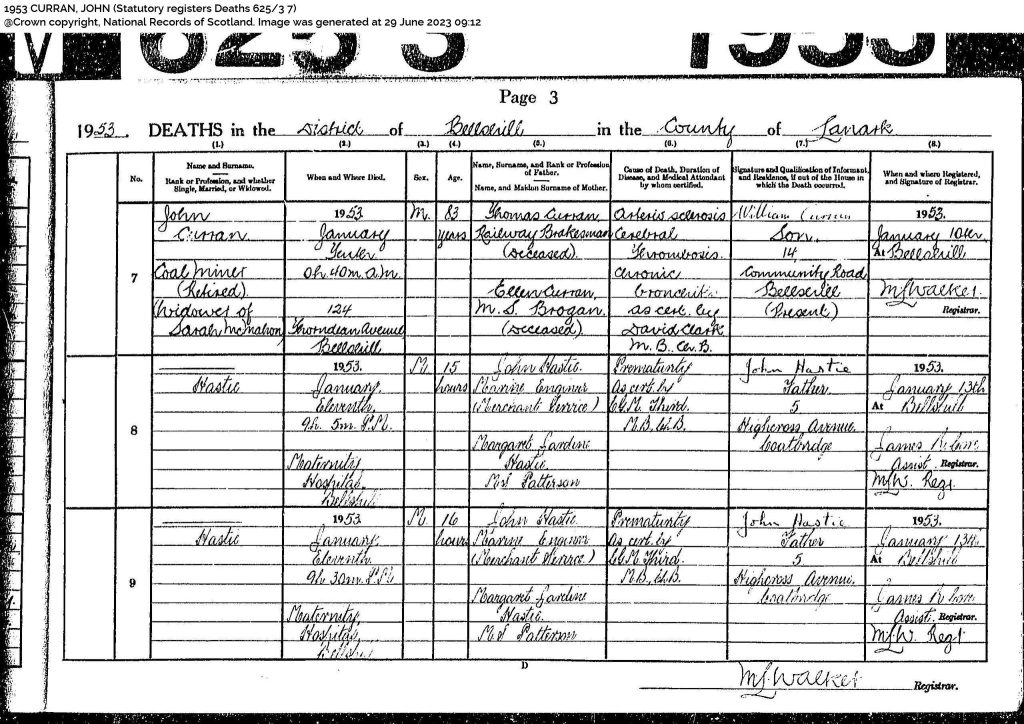 1953 CURRAN, JOHN (Statutory registers Deaths 625/3 7)
@Crown copyright, National Records of Scotland. Image was generated at 29 June 2023 09:12
V 625 3 1953
Page 3
1953. DEATHS in the District of Bellshill in the County of Lanark
(1.) (2.) (3.) (4.) (5.) (6.) (7.) (8.)
No.
Name and Surname.
Rank or Profession, and whether Single, Married, or Widowed.
When and Where Died.
Sex.
Age.
Name, Surname, and Rank or Profession of Father.
Name, and Maiden Surname of Mother.
Cause of Death, Duration of Disease, and Medical Attendant by whom certified.
Signature and Qualification of Informant, and Residence, if out of the House in which the Death occurred.
When and where Registered, and Signature of Registrar.
7
John
Curran
Coal Miner
(Retired)
Widower of
Sarah McMahon
1953
January
Tenth
0h. 40m. a.m.
124
Thorndean Avenue
Bellshill
M.
83
years
Thomas Curran
Railway Brakesman
(deceased)
Ellen Curran,
M.S. Brogan.
(deceased)
Arterio sclerosis
Cerebral
Thrombosis.
Chronic
bronchitis
as cert. by
David Clark
M.B., Ch.B.
William Curran
Son.
14
Community Road
Bellshill
(Present)
1953.
January 10th
At Bellshill
M L Walker
Registrar.
8
Hastie
1953.
January
Eleventh.
9h. 5m. P.M.
Maternity
Hospital
Bellshill
M.
15
hours
John Hastie
Marine Engineer
(Merchant Service)
Margaret Jardine
Hastie
M.S. Patterson
Prematurity
As cert. by
M.B. Ch.B.
John Hastie
Father
5
Highcross Avenue
Coatbridge
1953.
January 13th
At Bellshill
James
Assist. Registrar.
Regr
9
Hastie
1953
January
Eleventh
9h 30m P.M.
Maternity
Hospital
Bellshill
M.
16
hours
John Hastie
Marine Engineer
(Merchant Service)
Margaret Jardine
Hastie.
M.S Patterson
Prematurity
As cert. by
M.B., Ch.B.
John Hastie
Father
5
Highcross Avenue
Coatbridge
1953.
January 13th
At Bellshill
James
Assist. Registrar.
Regr
D
M L Walker Registrar.